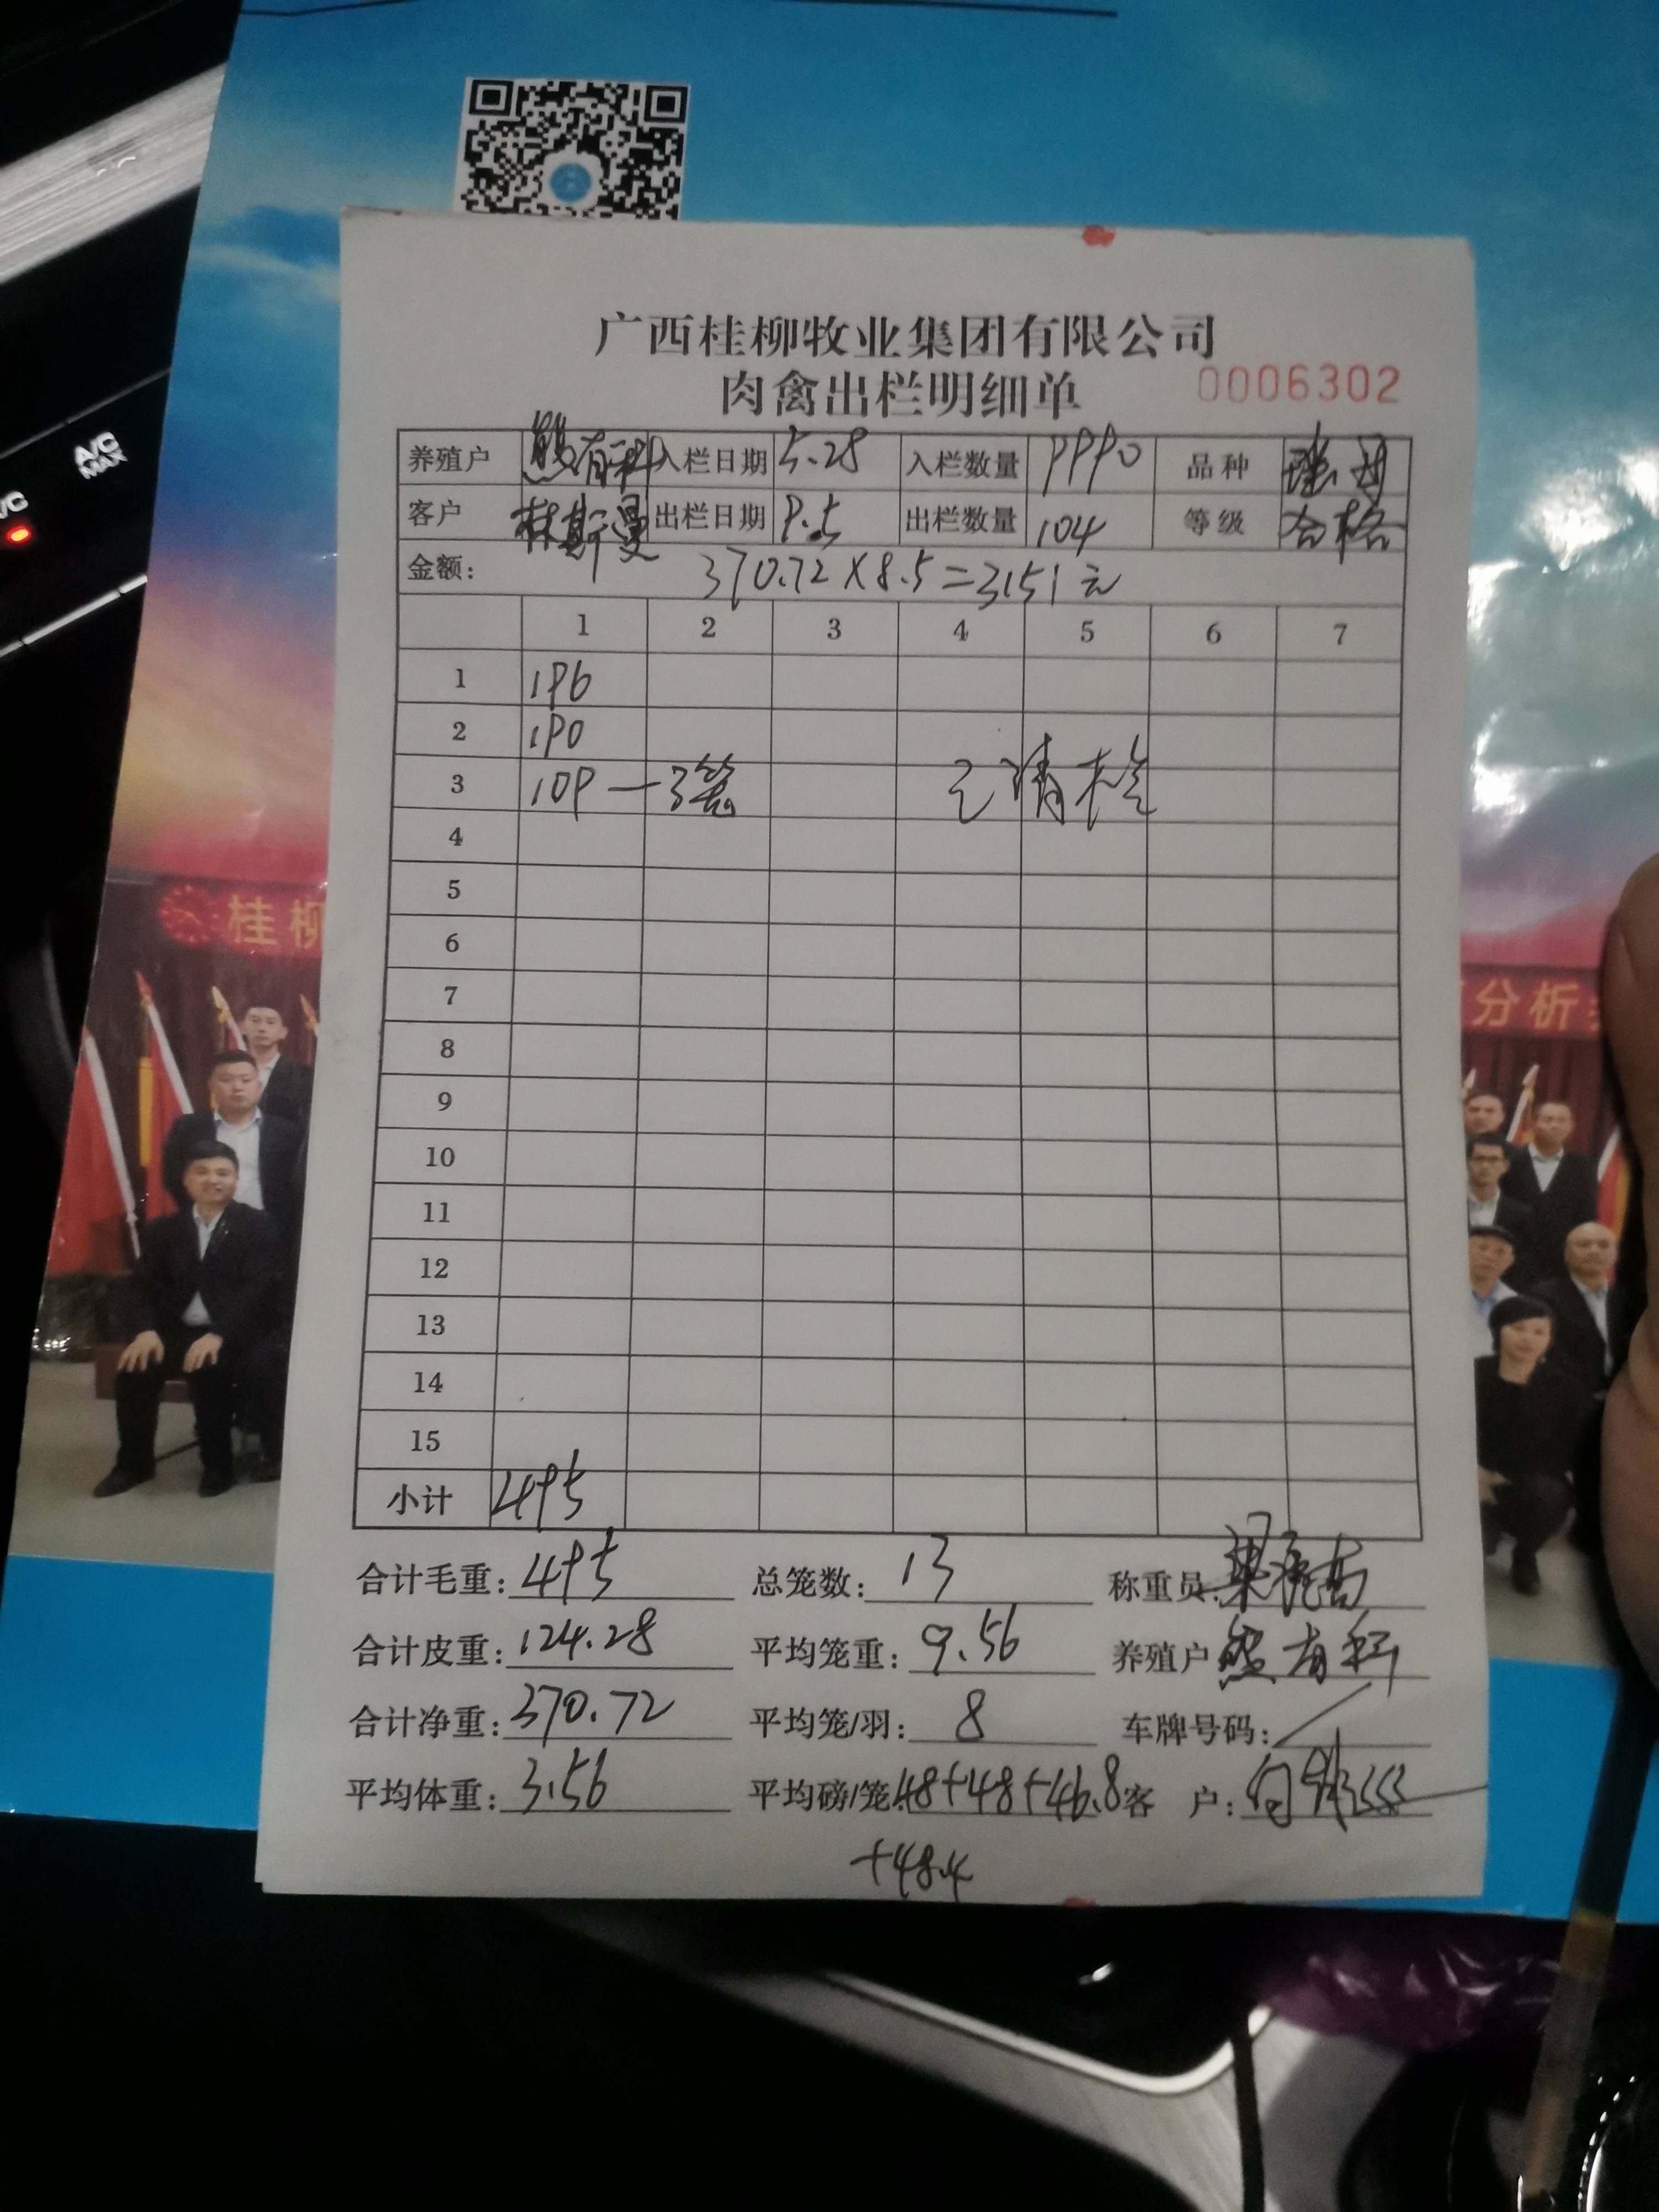 A/C
MAX
A/C
广西桂柳牧业集团有限公司
肉禽出栏明细单 0006302
养殖户 熊有科 入栏日期 5.28 入栏数量 9990 品种
客户 林斯曼 出栏日期 9.5 出栏数量 104 等级 合格
金额: 370.72×8.5=3151元
1 2 3 4 5 6 7
1 196
2 190
3 109—3笼 已清栏
4
5
6
7
8
9
10
11
12
13
14
15
小计 495
合计毛重: 495 总笼数: 13 称重员:
合计皮重: 124.28 平均笼重: 9.56 养殖户 熊有科
合计净重: 370.72 平均笼/羽: 8 车牌号码: /
平均体重: 3.56 平均磅/笼: 48+48+46.8 客 户:
+48.4
桂柳
分析